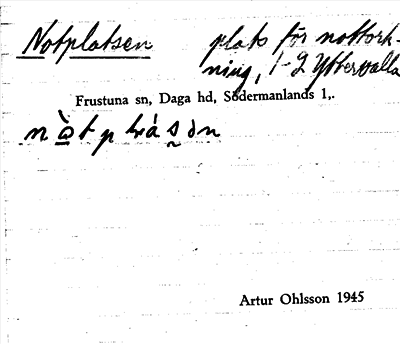 Notplatsen
plats för nottork-
ning, 1-2 Yttervalla
Frustuna sn, Daga hd, Södermanlands l,.
Artur Ohlsson 1945